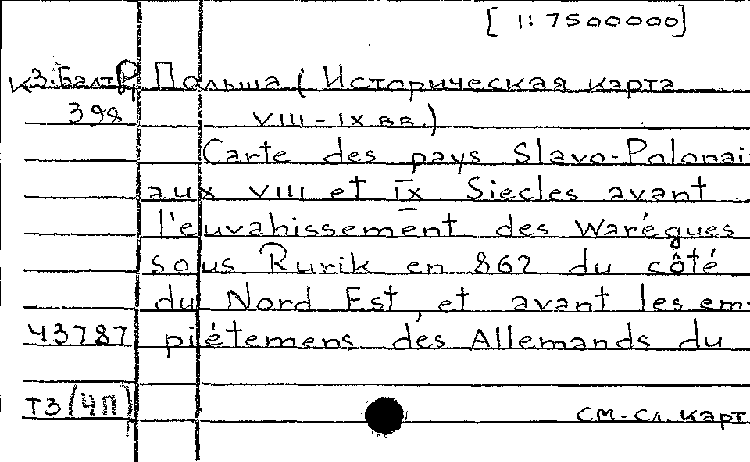 [1:7500000]
КЗ.БалтР Польша (Историческая карта
398 VIII-IX вв.)
Carte des pays Slavo-Polonai
aux VIII et IX Siecles avant
l'euvahissement des Warégues
sous Rurik en 862 du côté
du Nord Est, et avant les em-
43787 piétemens des Allemands du
ТЗ(4П)
см-сл. карт